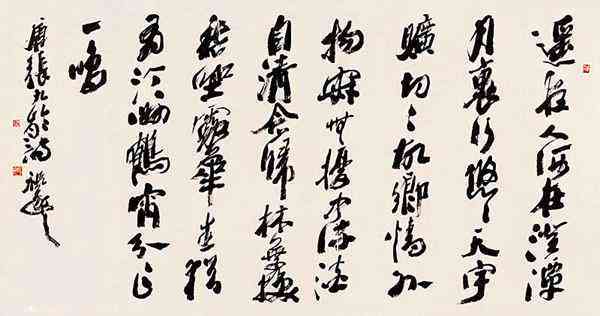 遥夜人何在澄潭
月裏行悠々天宇
曠切々故鄉情外
物寂無擾中流澹
自清念歸林葉換
愁坐露華生猶
有汀洲鶴宵分乍
一鳴
唐張九龄詩